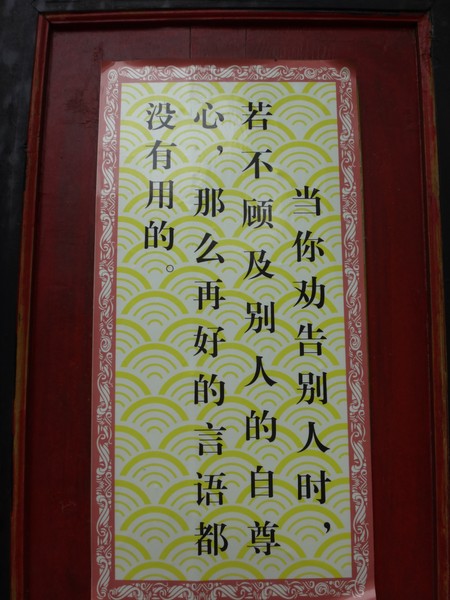 当你劝告别人时，
若不顾及别人的自尊
心，那么再好的言语都
没有用的。